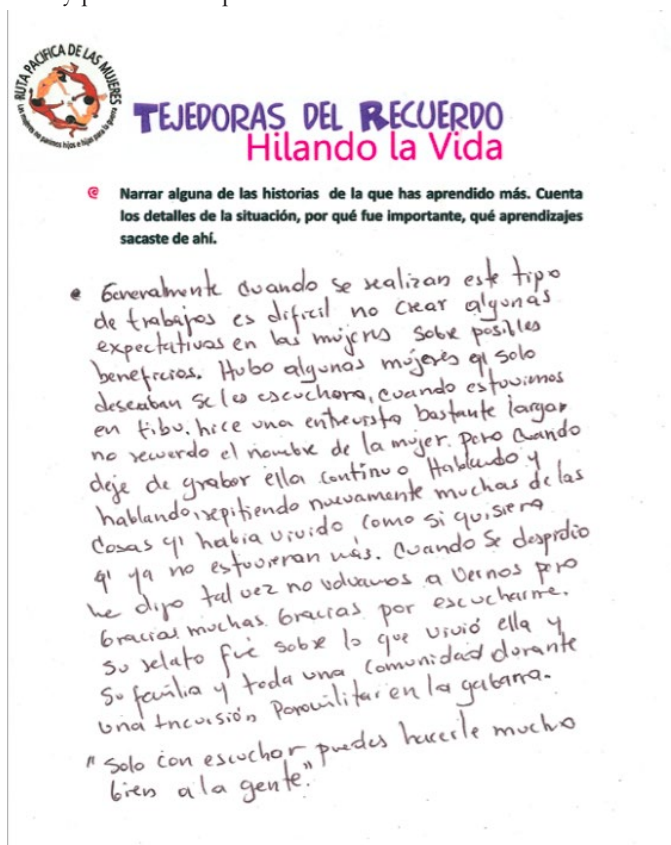 RUTA PACÍFICA DE LAS MUJERES
TEJEDORAS DEL RECUERDO
Hilando la Vida
Narrar alguna de las historias de la que has aprendido más. Cuenta
los detalles de la situación, por qué fue importante, qué aprendizajes
sacaste de ahí.
Generalmente cuando se realizan este tipo
de trabajos es dificil no crear algunas
expectativas en las mujeres sobre posibles
beneficios. Hubo algunas mujeres q' solo
deseaban se les escuchara, cuando estuvimos
en tibu. hice una entrevista bastante larga
no recuerdo el nombre de la mujer. Pero cuando
deje de grabar ella continuo Hablando y
hablando, repitiendo nuevamente muchas de las
Cosas q' habia vivido como si quisiera
q' ya no estuvieran más. Cuando se despidio
me dijo tal vez no volvamos a vernos pero
Gracias muchas Gracias por escucharme.
Su relato fue sobre lo que vivió ella y
su familia y toda una comunidad durante
una incursión Paramilitar en la gabarra.
"Solo con escuchar puedes hacerle mucho
bien a la gente."